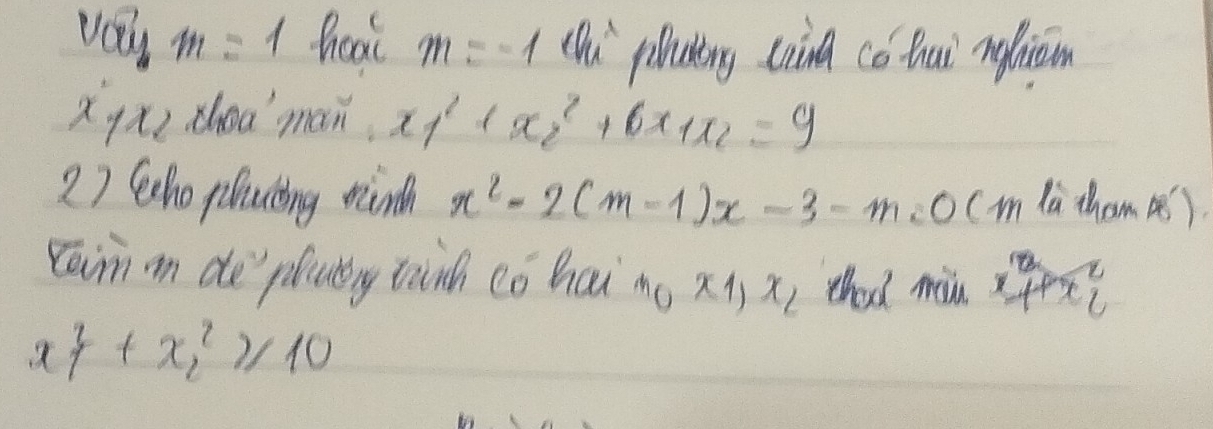 Vậy m = 1 hoặc m = -1 thì phương trình có hai nghiệm
x1,x2 thoả mãn. x1² + x2² + 6x1x2 = 9
2) Cho phương trình x² - 2(m-1)x - 3 - m = 0 (m là tham số).
Tìm m để phương trình có hai no x1, x2 thoả mãn
x1² + x2² ≥ 10